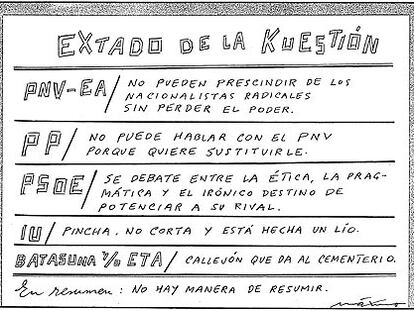 EXTADO DE LA KUESTIÓN
PNV-EA / NO PUEDEN PRESCINDIR DE LOS
NACIONALISTAS RADICALES
SIN PERDER EL PODER.
PP / NO PUEDE HABLAR CON EL PNV
PORQUE QUIERE SUSTITUIRLE.
PSOE / SE DEBATE ENTRE LA ÉTICA, LA PRAG-
MÁTICA Y EL IRÓNICO DESTINO DE
POTENCIAR A SU RIVAL.
IU / PINCHA. NO CORTA Y ESTÁ HECHA UN LÍO.
BATASUNA Y/O ETA / CALLEJÓN QUE DA AL CEMENTERIO.
En resumen: NO HAY MANERA DE RESUMIR.
máximo